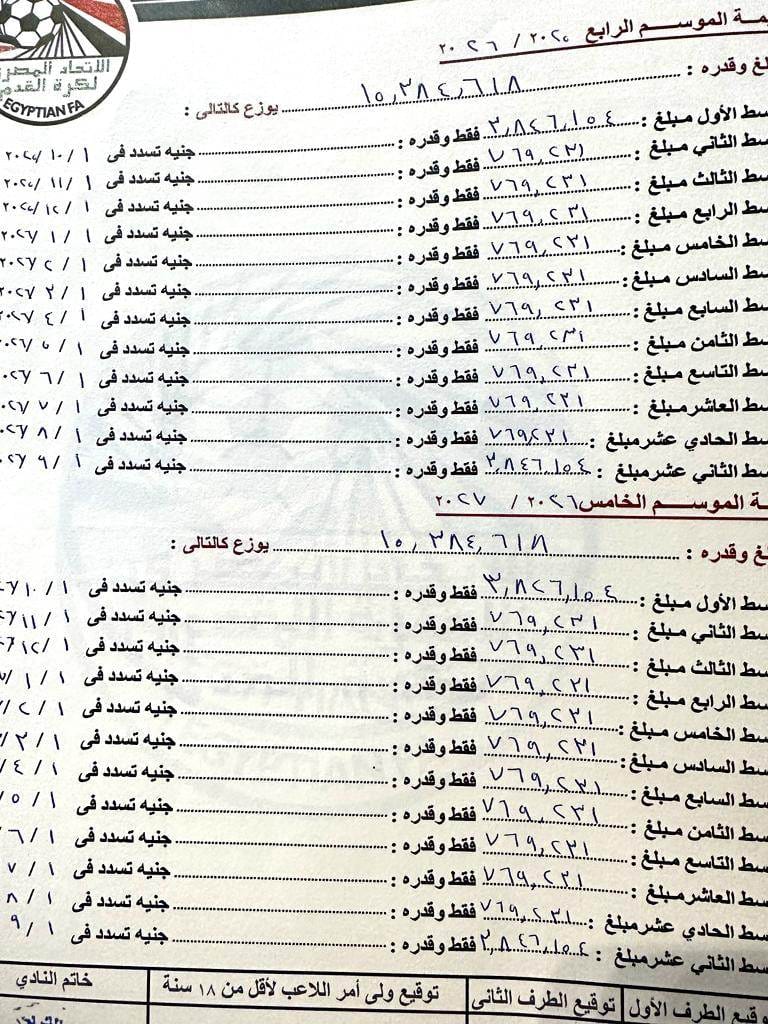 الاتحاد المصرى
لكرة القدم
EGYPTIAN FA
ـمة الموسم الرابع ٢٠٢٥ / ٢٠٢٦
ـلغ وقدره : ١٥,٣٨٤,٦١٨ يوزع كالتالى :
ـسط الأول مبلغ : ٣,٨٤٦,١٥٤ فقط وقدره : جنيه تسدد فى ١ / ١٠ / ٢٠٢٥
ـسط الثاني مبلغ : ٧٦٩,٢٣١ فقط وقدره : جنيه تسدد فى ١ / ١١ / ٢٠٢٥
ـسط الثالث مبلغ : ٧٦٩,٢٣١ فقط وقدره : جنيه تسدد فى ١ / ١٢ / ٢٠٢٥
ـسط الرابع مبلغ : ٧٦٩,٢٣١ فقط وقدره : جنيه تسدد فى ١ / ١ / ٢٠٢٦
ـسط الخامس مبلغ : ٧٦٩,٢٣١ فقط وقدره : جنيه تسدد فى ١ / ٢ / ٢٠٢٦
ـسط السادس مبلغ : ٧٦٩,٢٣١ فقط وقدره : جنيه تسدد فى ١ / ٣ / ٢٠٢٦
ـسط السابع مبلغ : ٧٦٩,٢٣١ فقط وقدره : جنيه تسدد فى ١ / ٤ / ٢٠٢٦
ـسط الثامن مبلغ : ٧٦٩,٢٣١ فقط وقدره : جنيه تسدد فى ١ / ٥ / ٠٢٦
ـسط التاسع مبلغ : ٧٦٩,٢٣١ فقط وقدره : جنيه تسدد فى ١ / ٦ / ٠٢٦
ـسط العاشر مبلغ : ٧٦٩,٢٣١ فقط وقدره : جنيه تسدد فى ١ / ٧ / ٠٢٦
ـسط الحادي عشر مبلغ : ٧٦٩٢٣١ فقط وقدره : جنيه تسدد فى ١ / ٨ / ٠٢٦
ـسط الثاني عشر مبلغ : ٣,٨٤٦,١٥٤ فقط وقدره : جنيه تسدد فى ١ / ٩ / ٠٢٦
ـة الموسم الخامس ٢٠٢٦ / ٢٠٢٧
ـلغ وقدره : ١٥,٣٨٤,٦١٨ يوزع كالتالى :
ـسط الأول مبلغ : ٣,٨٤٦,١٥٤ فقط وقدره : جنيه تسدد فى ١ / ١٠ / ٢٦
ـسط الثاني مبلغ : ٧٦٩,٢٣١ فقط وقدره : جنيه تسدد فى ١ / ١١ / ٢٦
ـسط الثالث مبلغ : ٧٦٩,٢٣١ فقط وقدره : جنيه تسدد فى ١ / ١٢ / ٢٦
ـسط الرابع مبلغ : ٧٦٩,٢٣١ فقط وقدره : جنيه تسدد فى ١ / ١ / ٧
ـسط الخامس مبلغ : ٧٦٩,٢٣١ فقط وقدره : جنيه تسدد فى ١ / ٢ / ٧
ـسط السادس مبلغ : ٧٦٩,٢٣١ فقط وقدره : جنيه تسدد فى ١ / ٣ / ٧
ـسط السابع مبلغ : ٧٦٩,٢٣١ فقط وقدره : جنيه تسدد فى ١ / ٤ /
ـسط الثامن مبلغ : ٧٦٩,٢٣١ فقط وقدره : جنيه تسدد فى ١ / ٥ /
ـسط التاسع مبلغ : ٧٦٩,٢٣١ فقط وقدره : جنيه تسدد فى ١ / ٦ /
ـسط العاشر مبلغ : ٧٦٩,٢٣١ فقط وقدره : جنيه تسدد فى ١ / ٧
ـسط الحادي عشر مبلغ : ٧٦٩,٢٣١ فقط وقدره : جنيه تسدد فى ١ / ٨
ـسط الثاني عشر مبلغ : ٣,٨٤٦,١٥٤ فقط وقدره : جنيه تسدد فى ١ / ٩
ـوقيع الطرف الأول توقيع الطرف الثانى توقيع ولى أمر اللاعب لأقل من ١٨ سنة خاتم النادي